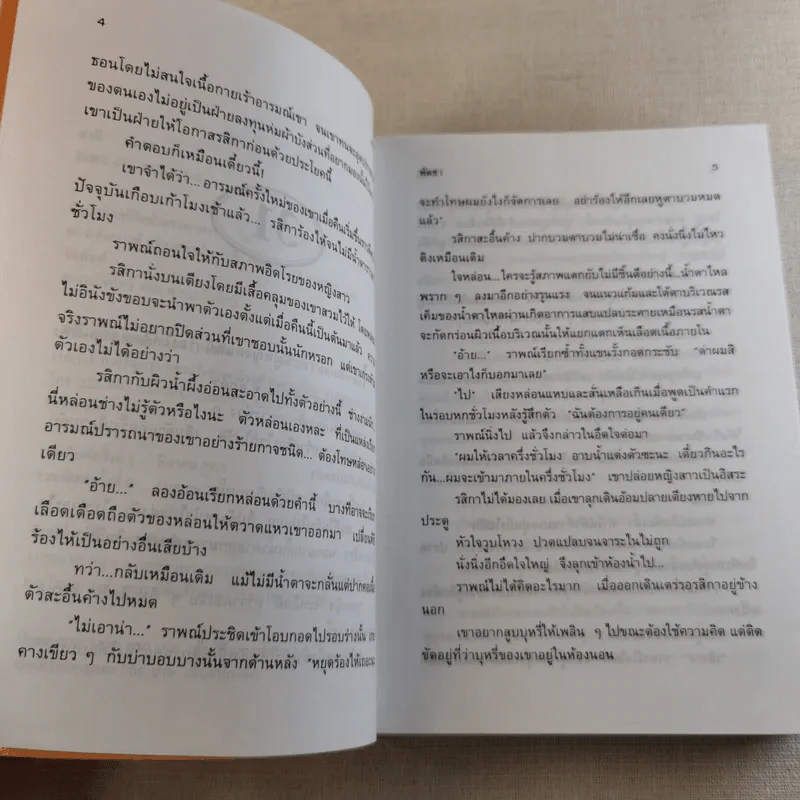 4
ธอนโดยไม่สนใจเนื้อกายเร้าอารมณ์เขา
ของตนเองไม่อยู่เป็นฝ่ายลงทุนห่มผ้าบังส่วนที่อยาก
เขาเป็นฝ่ายให้โอกาสรสิกาก่อนด้วยประโยคนี้
คำตอบก็เหมือนเดี๋ยวนี้!
เขาจำได้ว่า...อารมณ์ครั้งใหม่ของเขาเมื่อคืนเริ่มขึ้น
ปัจจุบันเกือบเก้าโมงเช้าแล้ว... รสิการ้องไห้จนไม่มีน้ำตา
ชั่วโมง
ราพณ์ถอนใจให้กับสภาพอิดโรยของหญิงสาว
รสิกานั่งบนเตียงโดยมีเสื้อคลุมของเขาสวมไว้ให้
ไม่อินังขังขอบจะนำพาตัวเองตั้งแต่เมื่อคืนนี้เป็นต้นมาแล้ว
จริงราพณ์ไม่อยากปิดส่วนที่เขาชอบนั้นนักหรอก
ตัวเองไม่ได้อย่างว่า
รสิกากับผิวน้ำผึ้งอ่อนสะอาดไปทั้งตัวอย่างนี้
นี่หล่อนช่างไม่รู้ตัวหรือไงนะ ตัวหล่อนเองหละ
อารมณ์ปรารถนาของเขาอย่างร้ายกาจชนิด... ต้องโทษหล่อน
เดียว
"อ้าย..." ลองอ้อนเรียกหล่อนด้วยคำนี้
เลือดเดือดถือตัวของหล่อนให้ตวาดแหวเขาออกมา
ร้องไห้เป็นอย่างอื่นเสียบ้าง
ทว่า...กลับเหมือนเดิม แม้ไม่มีน้ำตาจะกลั่นแต่ปาก
ตัวสะอื้นค้างไปหมด
"ไม่เอาน่า..." ราพณ์ประชิดเข้าโอบกอดไปรอบร่างนั้น
คางเขียว ๆ กับบ่าบอบบางนั้นจากด้านหลัง "หยุดร้องไห้
พัดชา 5
จะทำโทษผมยังไงก็จัดการเลย อย่าร้องไห้อีกเลยหูตาบวมหมด
แล้ว"
รสิกาสะอื้นค้าง ปากบวมตาบวมไม่น่าเชื่อ คงนั่งนิ่งไม่ไหว
ติงเหมือนเดิม
ใจหล่อน...ใครจะรู้สภาพแตกยับไม่มีชิ้นดีอย่างนี้...น้ำตาไหล
พราก ๆ ลงมาอีกอย่างรุนแรง จนแนวแก้มและใต้ตาบริเวณรส
เค็มของน้ำตาไหลผ่านเกิดอาการแสบแปลบระคายเหมือนรสน้ำตา
จะกัดกร่อนผิวเนื้อบริเวณนั้นให้แยกแตกเห็นเลือดเนื้อภายใน
"อ้าย..." ราพณ์เรียกซ้ำทั้งแขนรั้งกอดกระชับ "ด่าผมสิ
หรือจะเอาไงก็บอกมาเลย"
"ไป" เสียงหล่อนแหบและสั่นเหลือเกินเมื่อพูดเป็นคำแรก
ในรอบหกชั่วโมงหลังรู้สึกตัว "ฉันต้องการอยู่คนเดียว"
ราพณ์นิ่งไป แล้วจึงกล่าวในอึดใจต่อมา
"ผมให้เวลาครึ่งชั่วโมง อาบน้ำแต่งตัวซะนะ เดี๋ยวกินอะไร
กัน...ผมจะเข้ามาภายในครึ่งชั่วโมง" เขาปล่อยหญิงสาวเป็นอิสระ
รสิกาไม่ได้มองเลย เมื่อเขาลุกเดินอ้อมปลายเตียงหายไปจาก
ประตู
หัวใจวูบโหวง ปวดแปลบจนจาระไนไม่ถูก
นั่งนิ่งอีกอึดใจใหญ่ จึงลุกเข้าห้องน้ำไป...
ราพณ์ไม่ได้คิดอะไรมาก เมื่อออกเดินเตร่รอรสิกาอยู่ข้าง
นอก
เขาอยากสูบบุหรี่ให้เพลิน ๆ ไปขณะต้องใช้ความคิด แต่ติด
ขัดอยู่ที่ว่าบุหรี่ของเขาอยู่ในห้องนอน